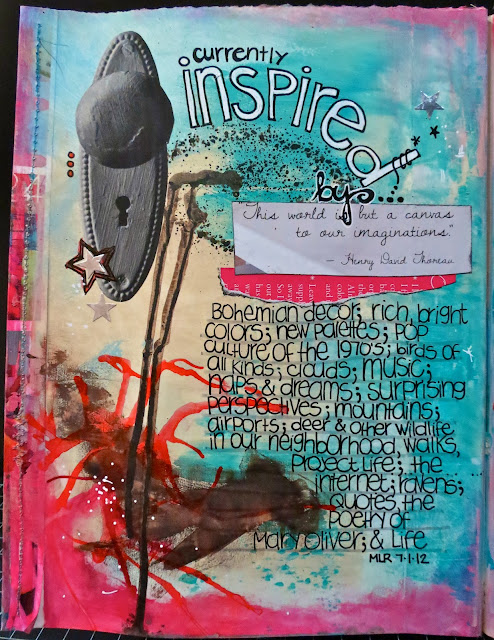 currently
inspired
by....
"This world is but a canvas
to our imaginations."
— Henry David Thoreau
Bohemian decor; rich, bright
colors; new palettes; pop
culture of the 1970s; birds of
all kinds; clouds; music;
naps & dreams; surprising
perspectives; mountains;
airports; deer & other wildlife
in our neighborhood, walks,
Project Life; the
internet; ravens;
quotes, the
poetry of
Mary Oliver; & Life
MLR 7.1.12